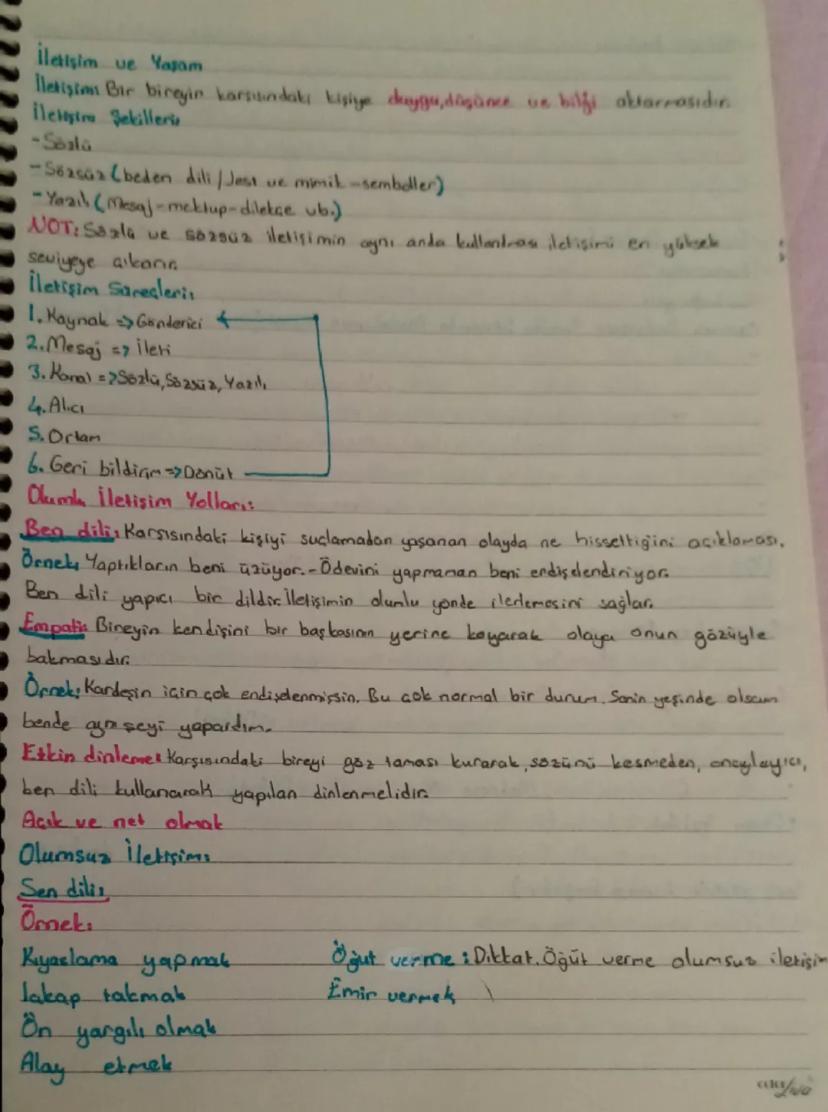 İletişim ve Yaşam
İletişim: Bir bireyin karşısındaki kişiye duygu, düşünce ve bilgi aktarmasıdır.
İletişim Şekilleri:
- Sözlü
- Sözsüz (beden dili / Jest ve mimik - semboller)
- Yazılı (Mesaj - mektup - dilekçe vb.)
NOT: Sözlü ve sözsüz iletişimin aynı anda kullanılması iletişimi en yüksek
seviyeye çıkarır.
İletişim Süreçleri:
1. Kaynak => Gönderici
2. Mesaj => İleti
3. Kanal => Sözlü, Sözsüz, Yazılı
4. Alıcı
5. Ortam
6. Geri bildirim => Dönüt
Olumlu İletişim Yolları:
Ben dili: Karşısındaki kişiyi suçlamadan yaşanan olayda ne hissettiğini açıklaması.
Örnek: Yaptıkların beni üzüyor. - Ödevini yapmaman beni endişelendiriyor.
Ben dili yapıcı bir dildir. İletişimin olumlu yönde ilerlemesini sağlar.
Empati: Bireyin kendisini bir başkasının yerine koyarak olaya onun gözüyle
bakmasıdır.
Örnek: Kardeşin için çok endişelenmişsin. Bu çok normal bir durum. Senin yeşinde olsam
bende aynı şeyi yapardım.
Etkin dinleme: Karşısındaki bireyi göz taması kurarak, sözünü kesmeden, onaylayıcı,
ben dili kullanarak yapılan dinlenmelidir.
Açık ve net olmak
Olumsuz İletişim:
Sen dili:
Örnek:
Kıyaslama yapmak Öğüt verme: Dikkat. Öğüt verme olumsuz iletişim
lakap takmak Emir vermek
Ön yargılı olmak
Alay etmek